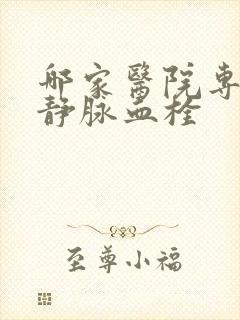 那家醫院専
靜脉血栓
至尊小福